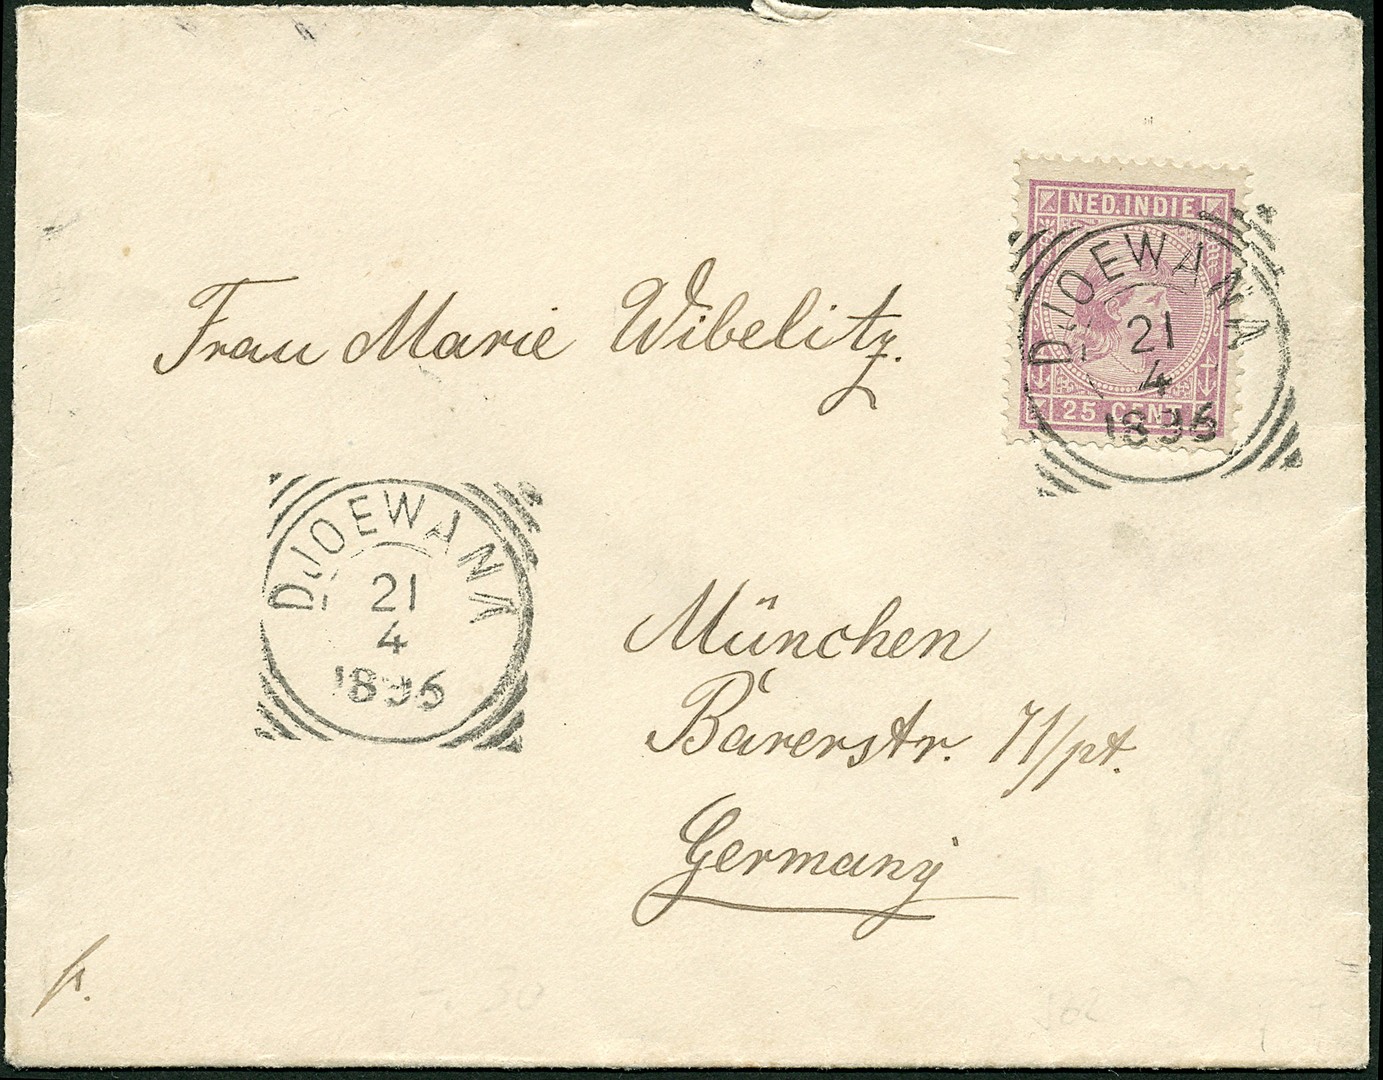 NED. INDIE
DJOEWANA
21
4
1896
25 CENT
Frau Marie Wibelitz.
DJOEWANA
21
4
1896
München
Barerstr. 71/pt.
Germany
fr.